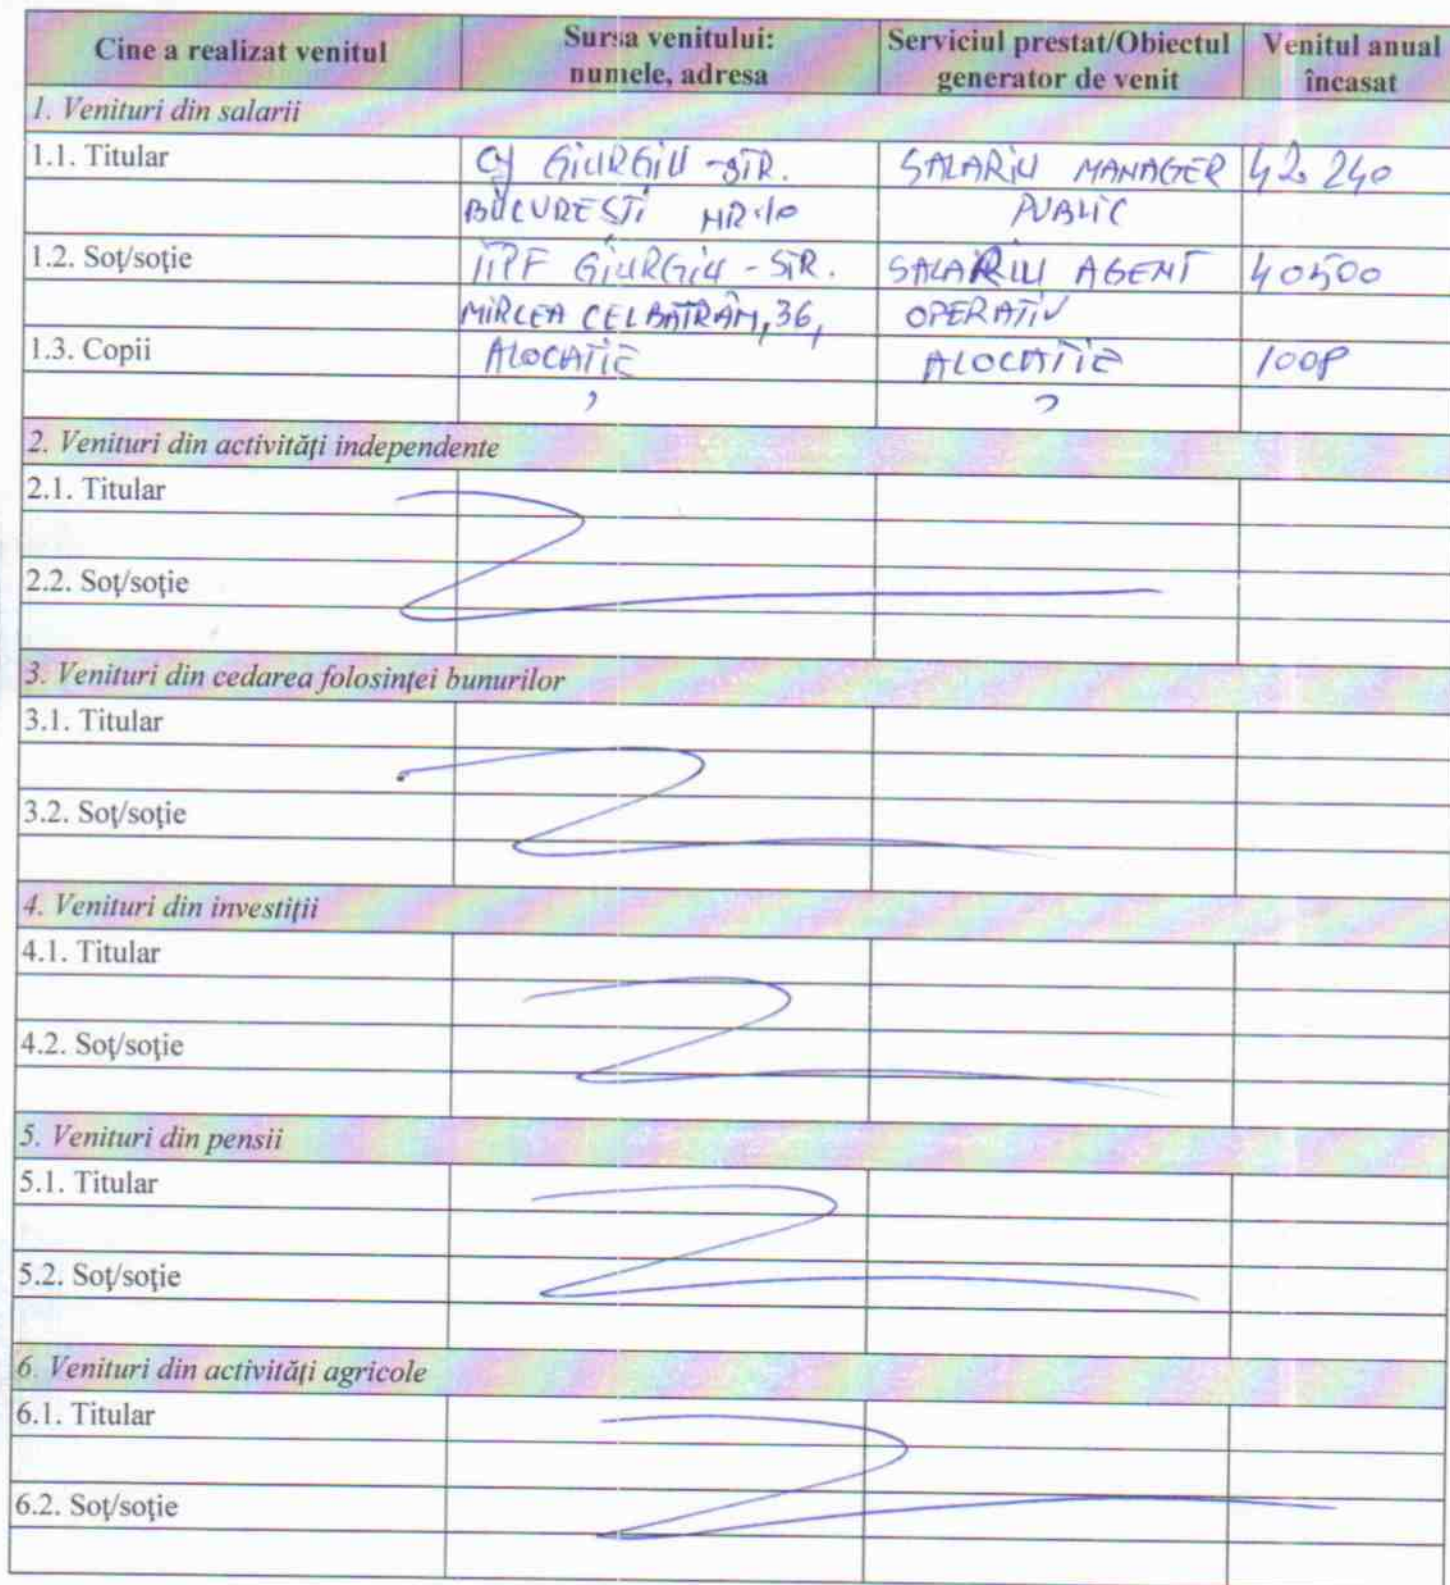 Cine a realizat venitul Sursa venitului: numele, adresa Serviciul prestat/Obiectul generator de venit Venitul anual încasat
1. Venituri din salarii
1.1. Titular CJ GIURGIU - STR. SALARIU MANAGER 42 240
BUCURESTI NR.10 PUBLIC
1.2. Soţ/soţie GIURGIU - STR. SALARIU AGENT 40500
MIRCEA CEL BATRAN, 36, OPERATIV
1.3. Copii ALOCAȚIE ALOCAȚIE
2. Venituri din activităţi independente
2.1. Titular
2.2. Soţ/soţie
3. Venituri din cedarea folosinţei bunurilor
3.1. Titular
3.2. Soţ/soţie
4. Venituri din investiţii
4.1. Titular
4.2. Soţ/soţie
5. Venituri din pensii
5.1. Titular
5.2. Soţ/soţie
6. Venituri din activităţi agricole
6.1. Titular
6.2. Soţ/soţie